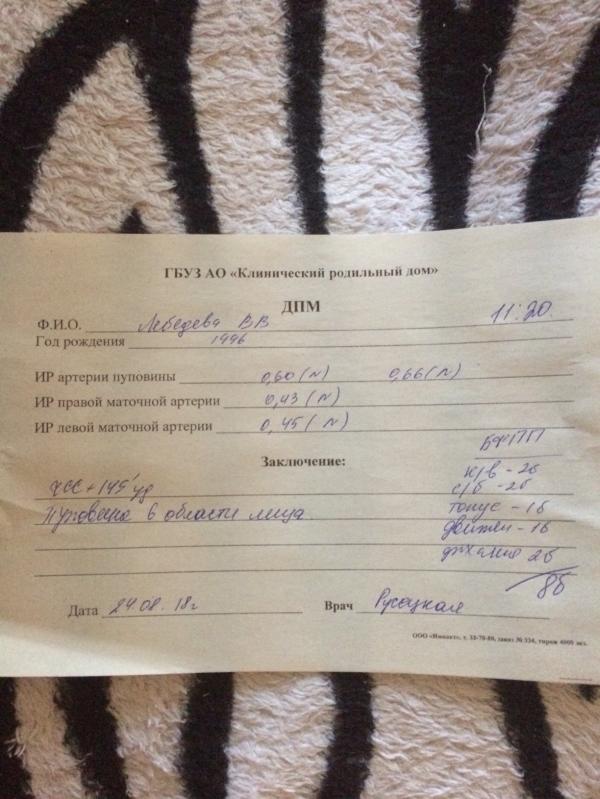 ГБУЗ АО «Клинический родильный дом»
ДПМ
11:20
Ф.И.О. Лебедева ВВ
Год рождения 1996
ИР артерии пуповины 0,60 (N) 0,66 (N)
ИР правой маточной артерии 0,43 (N)
ИР левой маточной артерии 0,45 (N)
БФПП
Заключение:
к/в - 2б
ЧСС + 145' уд с/б - 2б
Пуповина в области лица тонус - 1б
движен - 1б
дыхания 2б
8б
Дата 24.08.18г Врач Русецкая
ООО «Импакт», т. 38-70-80, заказ № 334, тираж 4000 экз.